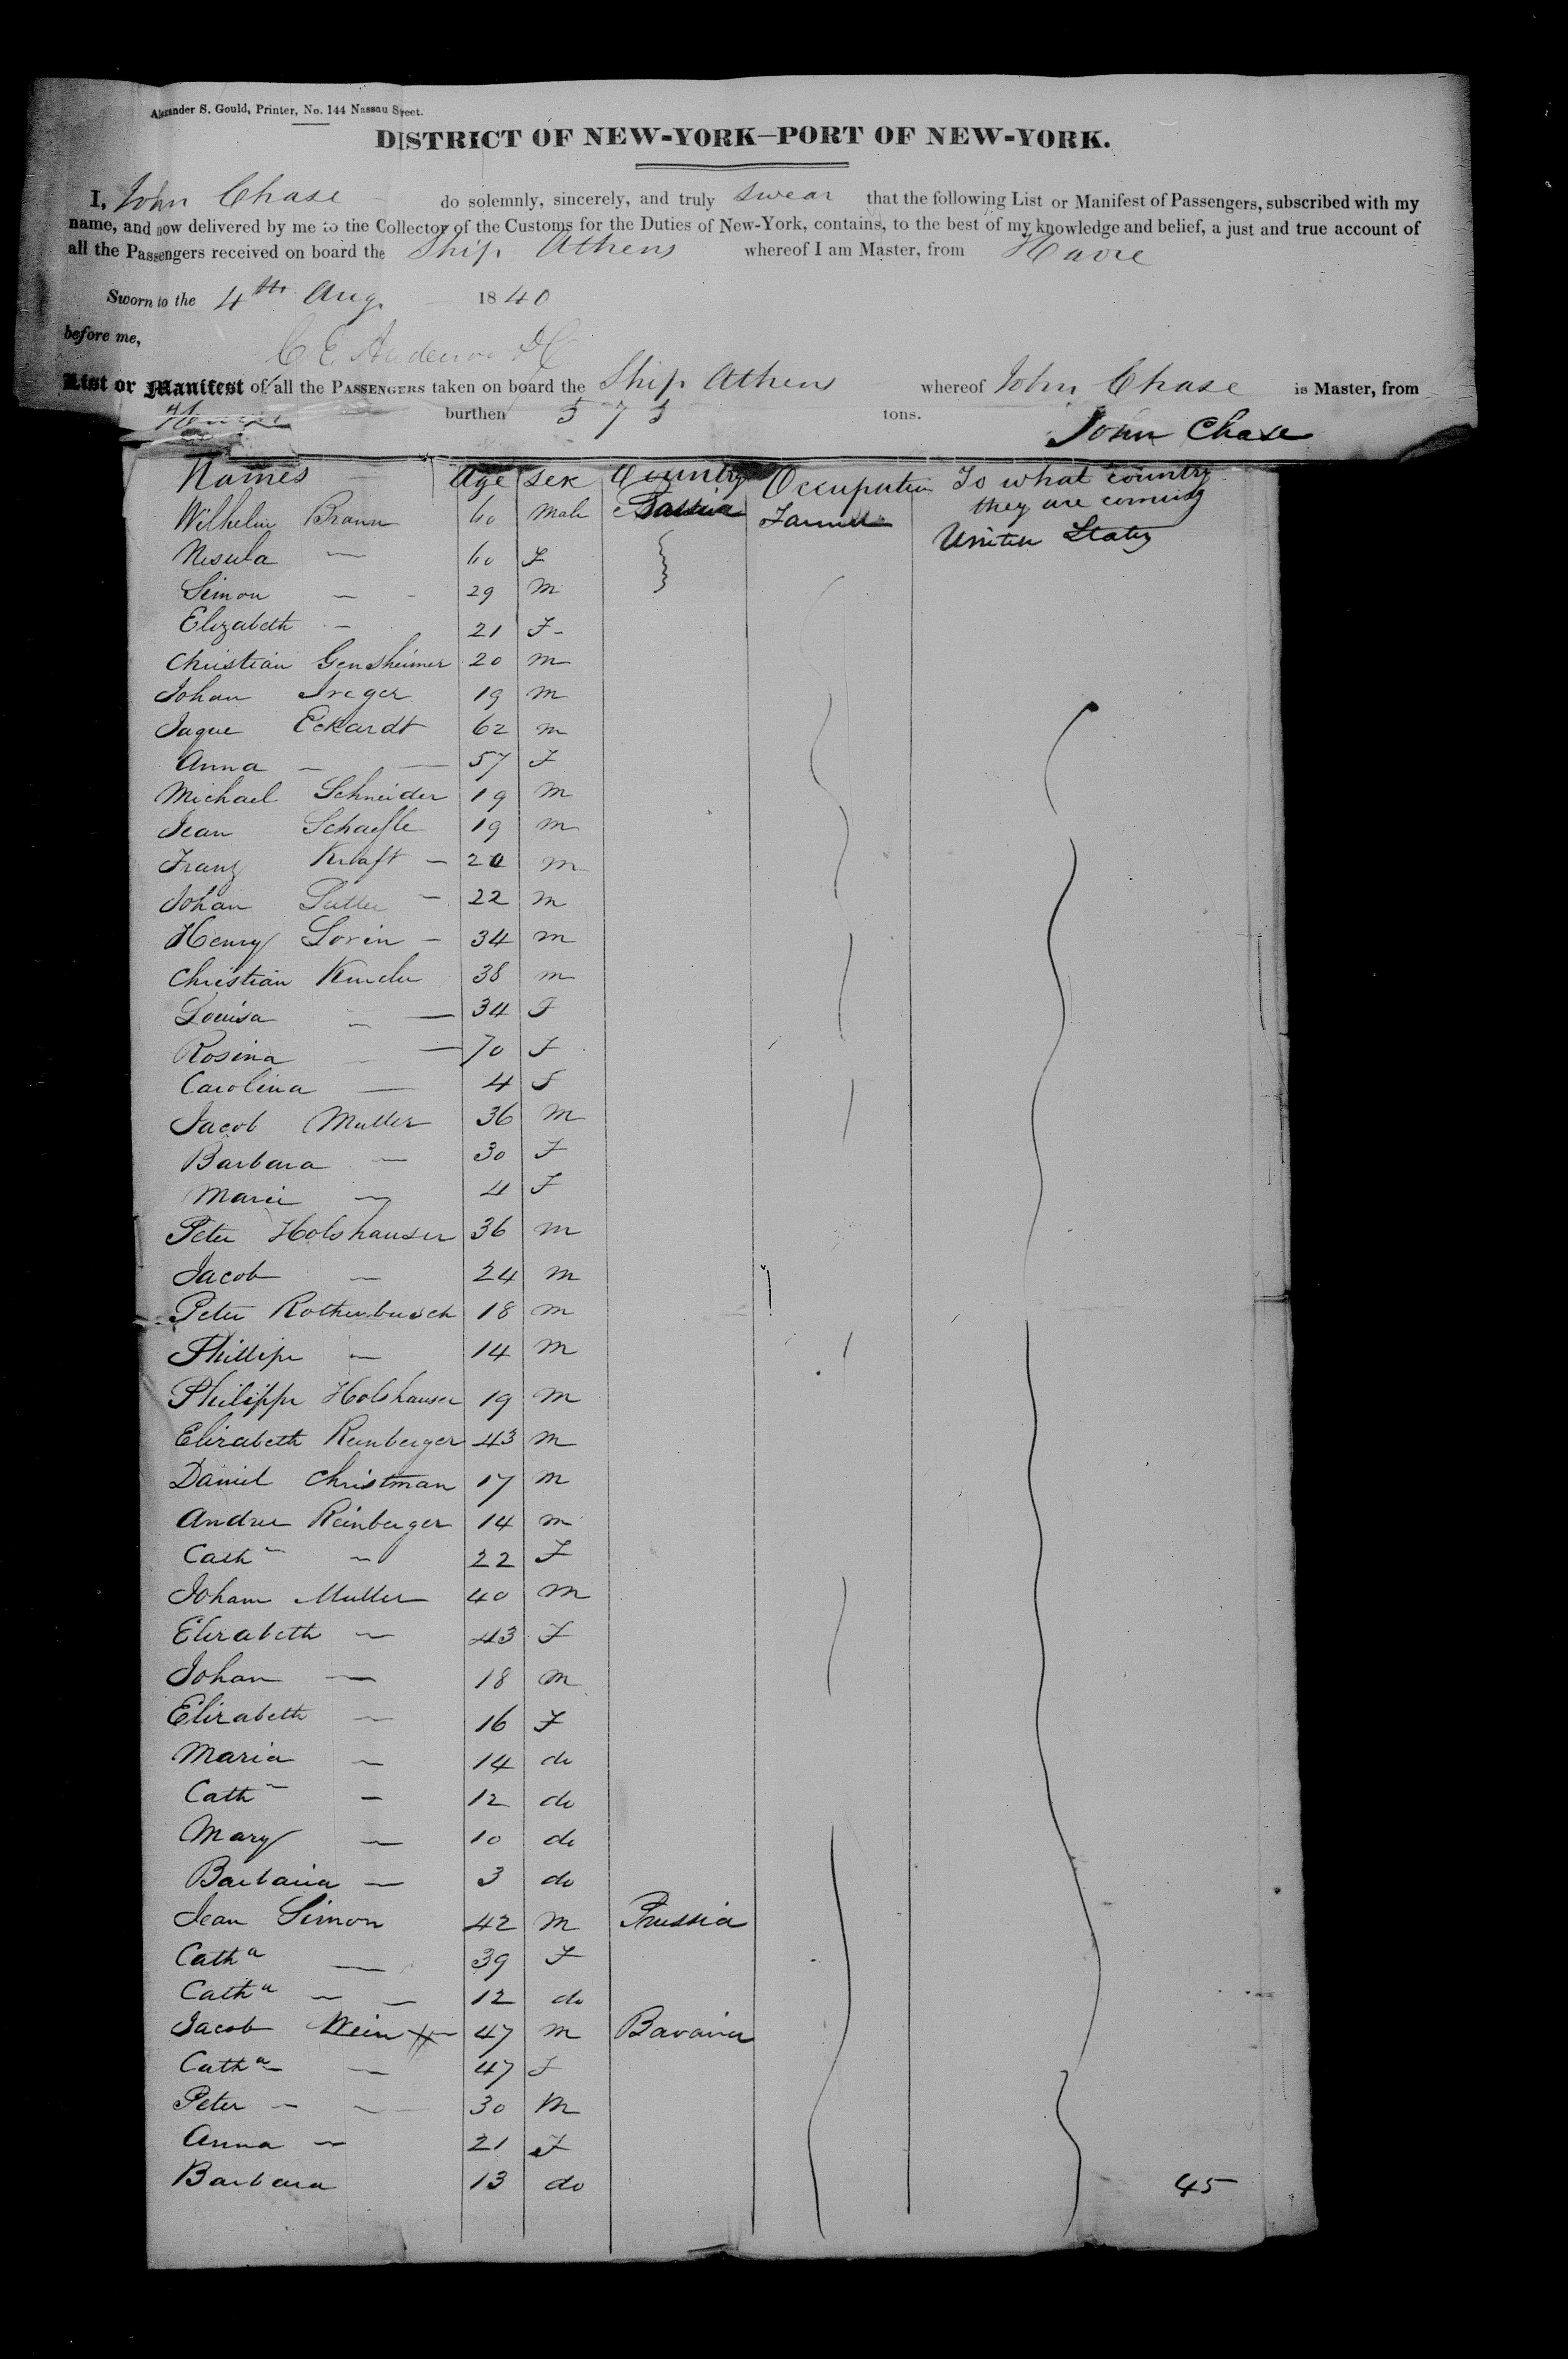 Alexander S. Gould, Printer, No. 144 Nassau Street.
DISTRICT OF NEW-YORK—PORT OF NEW-YORK.
I, John Chase do solemnly, sincerely, and truly swear that the following List or Manifest of Passengers, subscribed with my
name, and now delivered by me to the Collector of the Customs for the Duties of New-York, contains, to the best of my knowledge and belief, a just and true account of
all the Passengers received on board the Ship Athens whereof I am Master, from Havre
Sworn to the 4th Aug. 1840
before me,
C E Anderson DC
List or Manifest of all the PASSENGERS taken on board the Ship Athens whereof John Chase is Master, from
Havre burthen 573 tons.
John Chase
Names Age Sex Country Occupation To what country
they are coming
Wilhelm Braun 60 Male Farmer United States
60 F
Simon — 29 M
Elizabeth — 21 F
Christian Gensheimer 20 M
Johan 19 M
Jaque Eckardt 62 M
Anna — 57 F
Michael Schneider 19 M
Jean Schaefle 19 M
Franz Kraft — 20 M
Johan 22 M
Henry Lorin — 34 M
Christian 38 M
Louisa — 34 F
Rosina — 70 F
Carolina — 4 F
Jacob Muller 36 M
Barbara — 30 F
Marie — 4 F
Peter Holshauser 36 M
Jacob — 24 M
Peter Rothenbusch 18 M
Phillipe — 14 M
Philippe Holshauser 19 M
Elizabeth Reinberger 43 M
Daniel Christman 17 M
Andre Reinberger 14 M
Cath — 22 F
Johann Muller 40 M
Elizabeth — 43 F
Johan — 18 M
Elizabeth — 16 F
Maria — 14 do
Cath — 12 do
Mary — 10 do
Barbara — 3 do
Jean Simon 42 M Prussia
Catha — 39 F
Catha — — 12 do
Jacob Wein 47 M Bavaria
Catha — 47 F
Peter — — 30 M
Anna — 21 F
Barbara 13 do
45